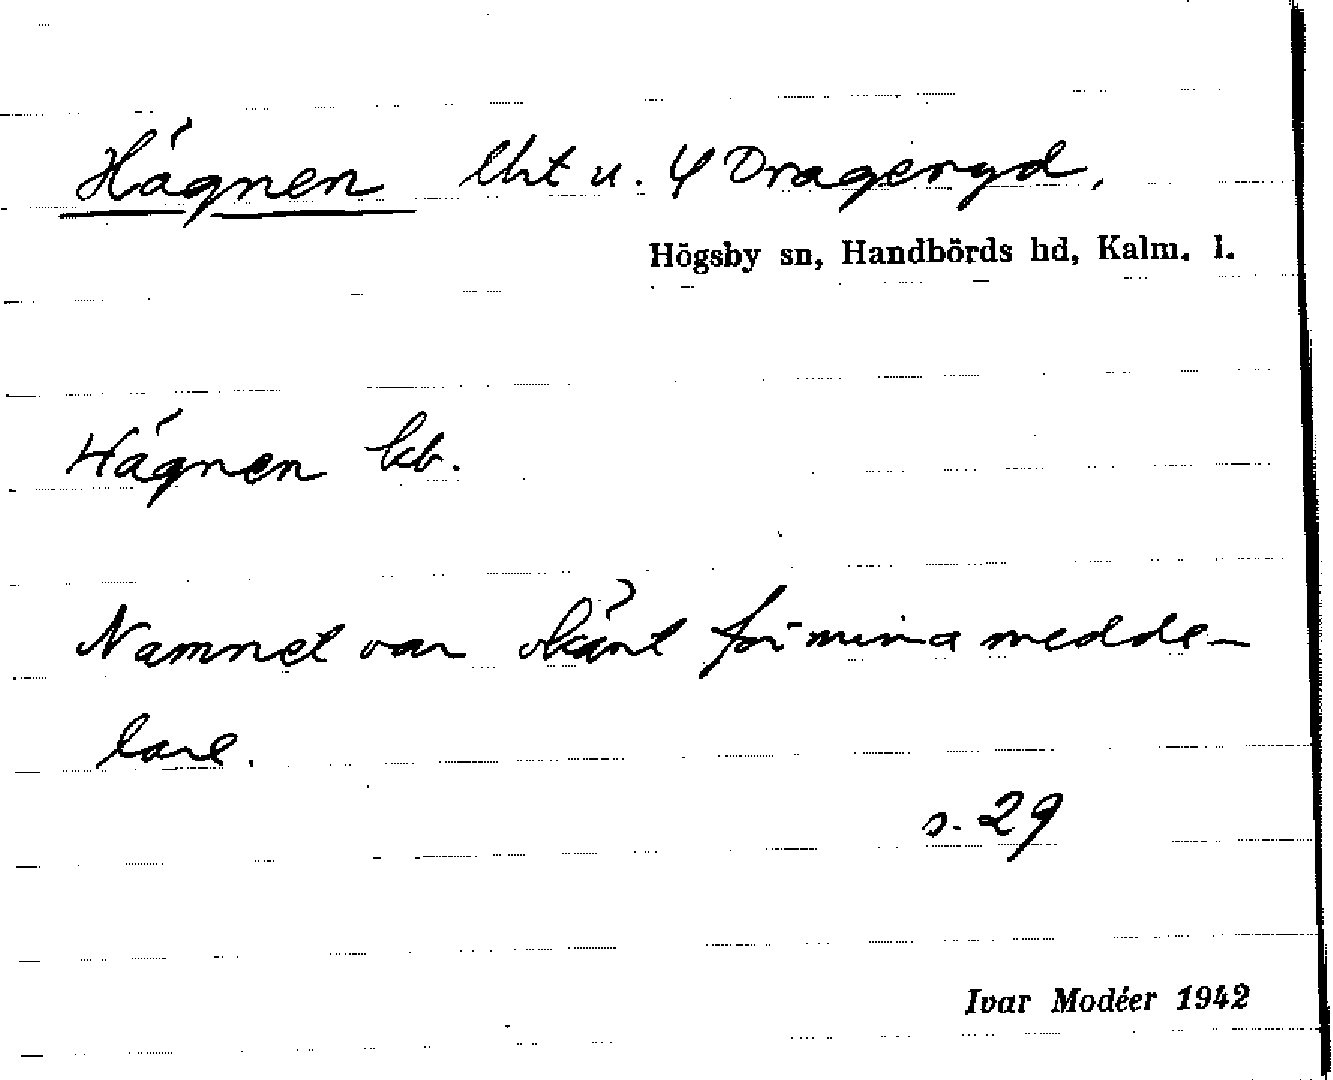 Hägnen lht u. 4 Drageryd,
Högsby sn, Handbörds hd, Kalm. l.
Hägnen kb.
Namnet var okänt för mina medde-
lare.
s. 29
Ivar Modéer 1942